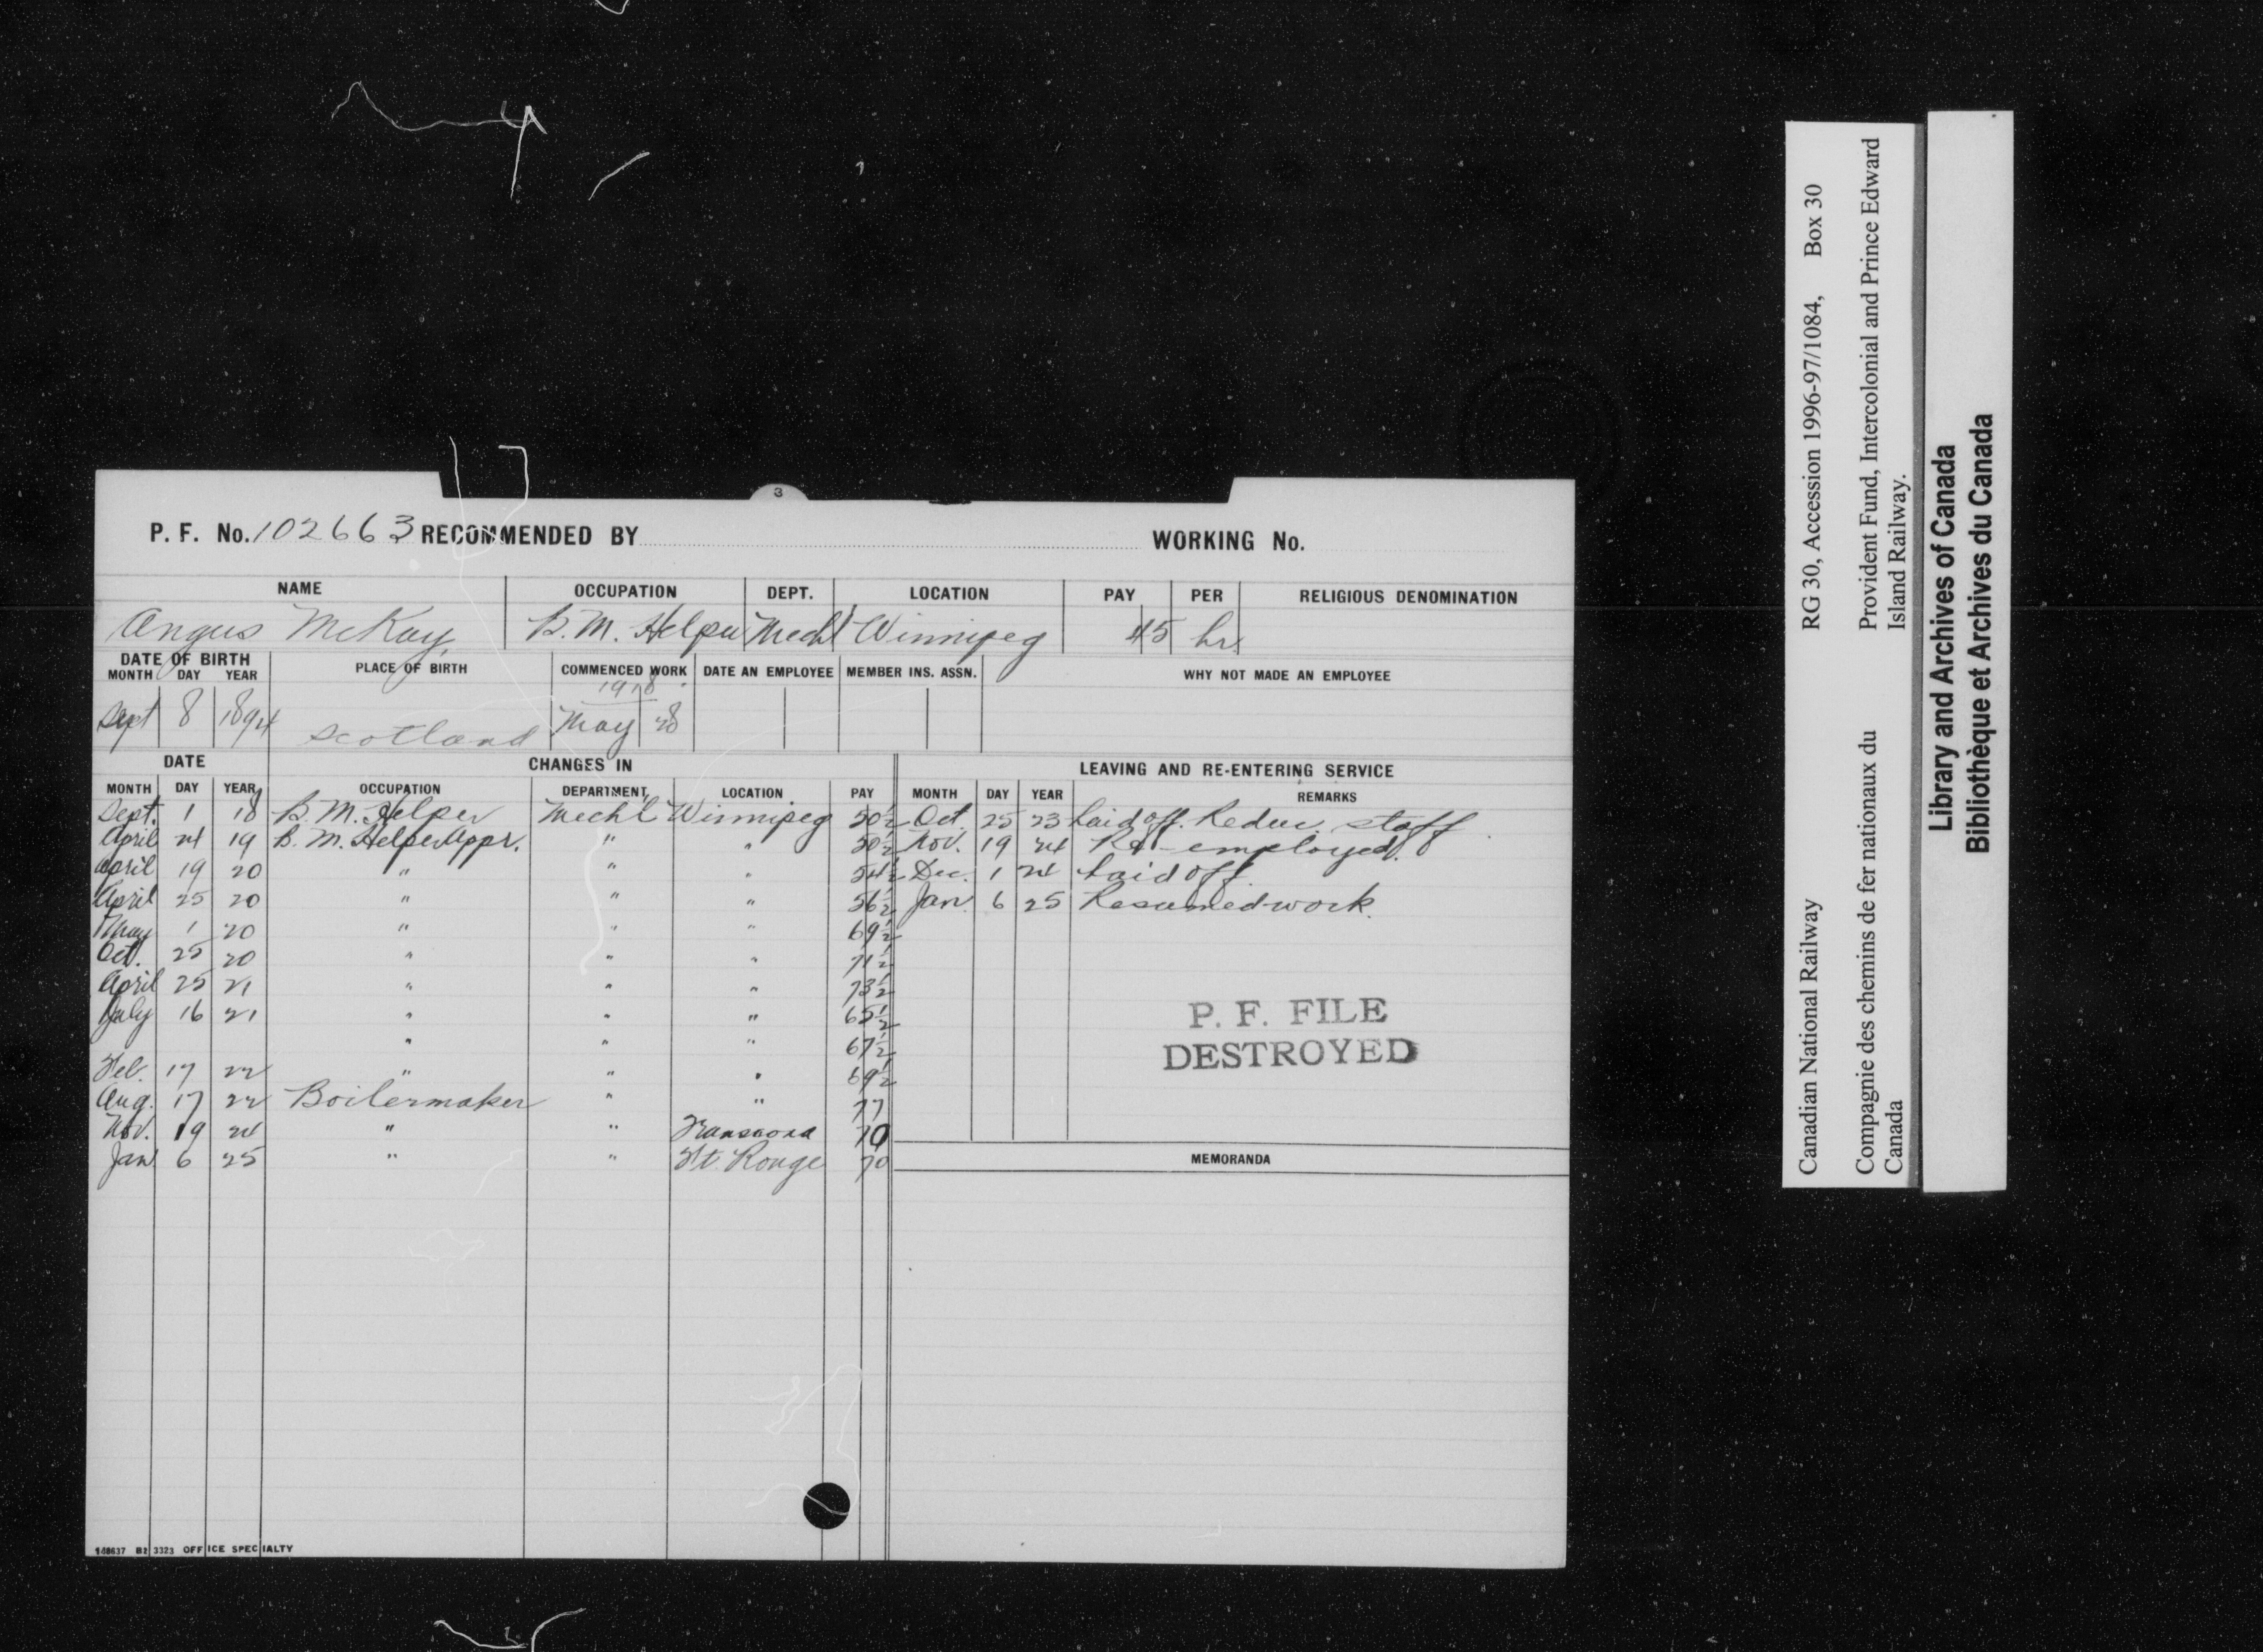 3
P. F. No. 102663 RECOMMENDED BY WORKING No.
NAME OCCUPATION DEPT. LOCATION PAY PER RELIGIOUS DENOMINATION
Angus McKay B.M. Helper Mechl Winnipeg 45 hr.
DATE OF BIRTH PLACE OF BIRTH COMMENCED WORK DATE AN EMPLOYEE MEMBER INS. ASSN. WHY NOT MADE AN EMPLOYEE
MONTH DAY YEAR
1918
Sept 8 1894 Scotland May 28
DATE CHANGES IN LEAVING AND RE-ENTERING SERVICE
MONTH DAY YEAR OCCUPATION DEPARTMENT LOCATION PAY MONTH DAY YEAR REMARKS
Sept. 1 18 B.M. Helper Mech'l Winnipeg 50½ Oct 25 23 Laid off. Reduc. staff
April 24 19 B.M. Helper Appr. " " 50½ Nov. 19 24 Re-employed.
April 19 20 " " " 54½ Dec. 1 24 Laid off
April 25 20 " " " 56½ Jan 6 25 Resumed work.
May 1 20 " " " 69½
Oct. 25 20 " " " 71½
April 25 21 " " " 73½
July 16 21 " " " 65½
" " " 67½
Feb. 17 22 " " " 69½
Aug. 17 22 Boilermaker " " 77
Nov. 19 24 " " Transcona 70
Jan 6 25 " " Ft. Rouge 70
P. F. FILE
DESTROYED
MEMORANDA
148637 B2 3323 OFFICE SPECIALTY
Canadian National Railway RG 30, Accession 1996-97/1084, Box 30
Compagnie des chemins de fer nationaux du Canada
Provident Fund, Intercolonial and Prince Edward Island Railway.
Library and Archives of Canada
Bibliothèque et Archives du Canada